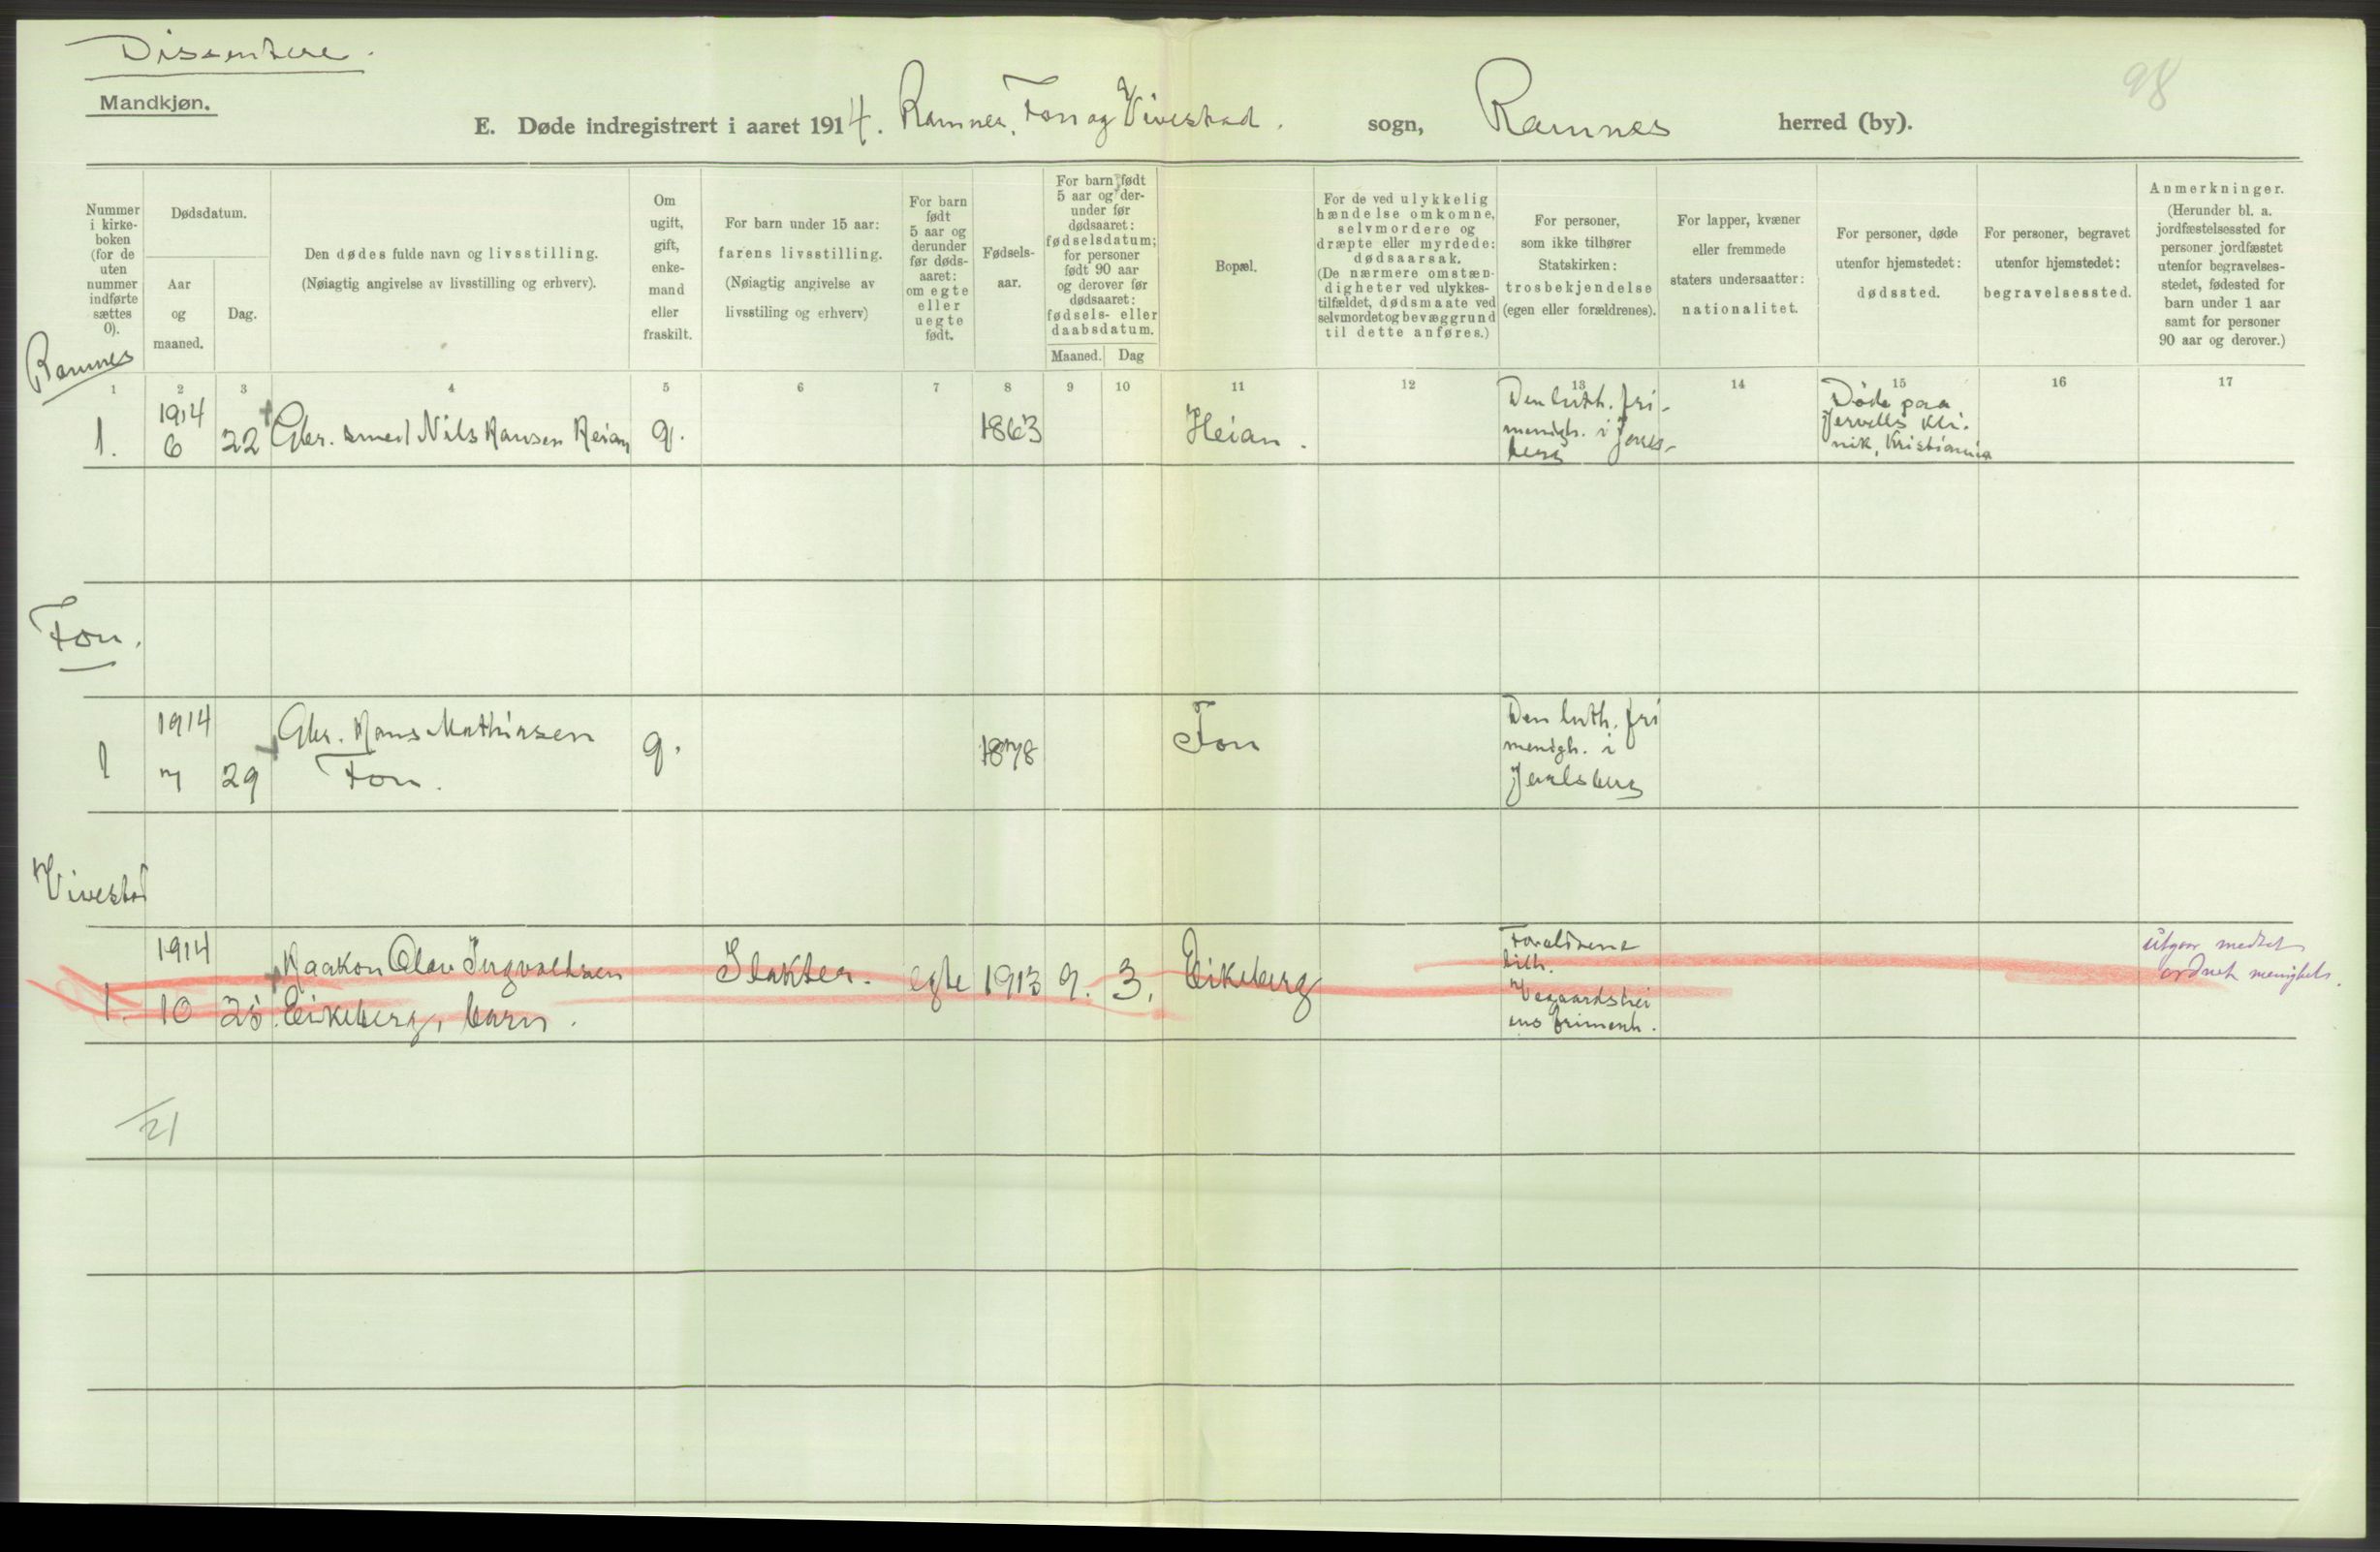 Dissentere.
Mandkjøn.
98
E. Døde indregistrert i aaret 1914. Ramnes, Fon og Vivestad. sogn, Ramnes herred (by).
Nummer
i kirke-
boken
(for de
uten
nummer
indførte
sættes
0).
Dødsdatum.
Aar
og
maaned.
Dag.
Den dødes fulde navn og livsstilling.
(Nøiagtig angivelse av livsstilling og erhverv).
Om
ugift,
gift,
enke-
mand
eller
fraskilt.
For barn under 15 aar:
farens livsstilling.
(Nøiagtig angivelse av
livsstiling og erhverv)
For barn
født
5 aar og
derunder
før døds-
aaret:
om egte
eller
uegte
født.
Fødsels-
aar.
For barn født
5 aar og der-
under før
dødsaaret:
fødselsdatum;
for personer
født 90 aar
og derover før
dødsaaret:
fødsels- eller
daabsdatum.
Maaned. Dag
Bopæl.
For de ved ulykkelig
hændelse omkomne,
selvmordere og
dræpte eller myrdede:
dødsaarsak.
(De nærmere omstæn-
digheter ved ulykkes-
tilfældet, dødsmaate ved
selvmordet og bevæggrund
til dette anføres.)
For personer,
som ikke tilhører
Statskirken:
trosbekjendelse
(egen eller forældrenes).
For lapper, kvæner
eller fremmede
staters undersaatter:
nationalitet.
For personer, døde
utenfor hjemstedet:
dødssted.
For personer, begravet
utenfor hjemstedet:
begravelsessted.
Anmerkninger.
(Herunder bl. a.
jordfæstelsessted for
personer jordfæstet
utenfor begravelses-
stedet, fødested for
barn under 1 aar
samt for personer
90 aar og derover.)
1 2 3 4 5 6 7 8 9 10 11 12 13 14 15 16 17
Ramnes
1. 1914 6 22 Gbr. smed Nils Hansen Heian g. 1863 Heian.
Den luth. fri-
menigh. i Jarls-
berg
Døde paa
Jervells Kli-
nik, Kristiania
Fon.
1 1914 7 29 Gbr. Hans Mathiasen
Fon.
g. 1878 Fon
Den luth. fri
menigh. i
Jarlsberg
Vivestad
1. 1914 10 25 Haakon Olav Ingvaldsen
Eikeberg, barn.
Slakter. egte 1913 9. 3. Eikeberg
Forældrene
tilh.
Vegaardshei
ens frimenh.
Utgaar medtat
ordnet menighets.
21